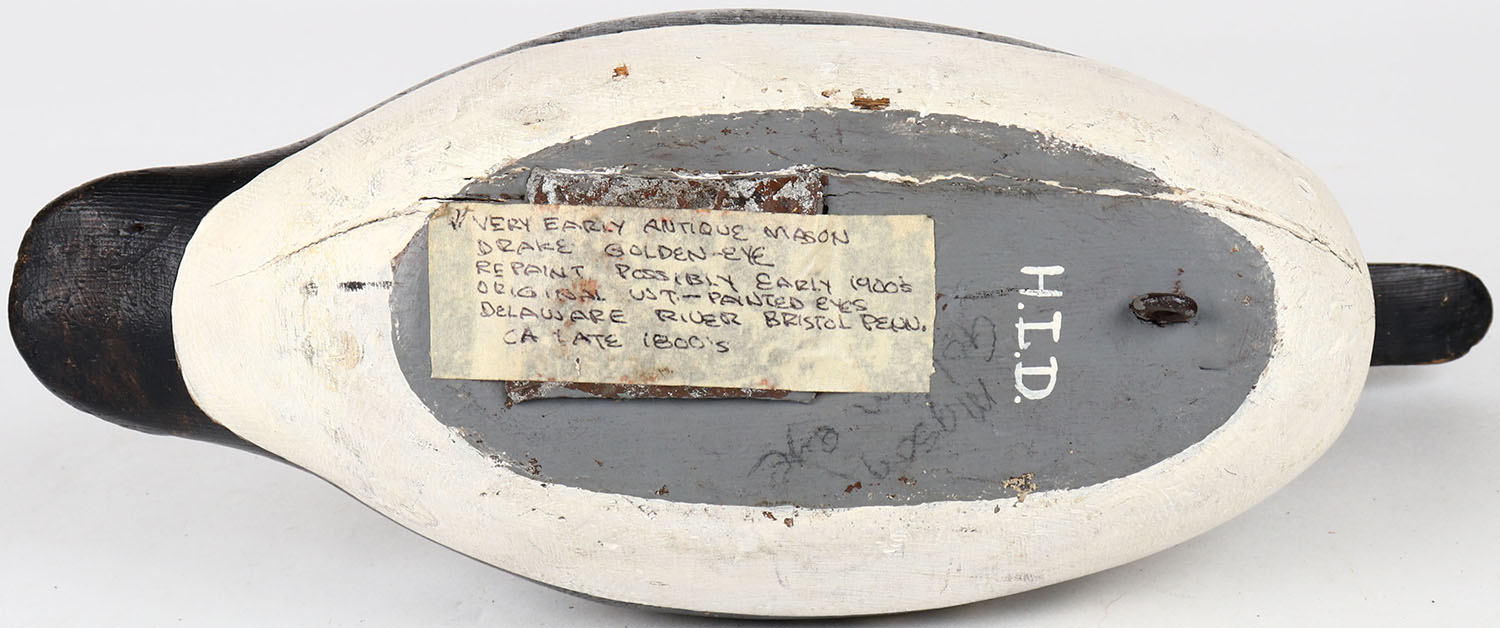 VERY EARLY ANTIQUE MASON
DRAKE GOLDEN-EYE
REPAINT POSSIBLY EARLY 1900's
ORIGINAL WT-PAINTED EYES
DELAWARE RIVER BRISTOL PENN.
CA LATE 1800's
H.I.D.
Mason
eye